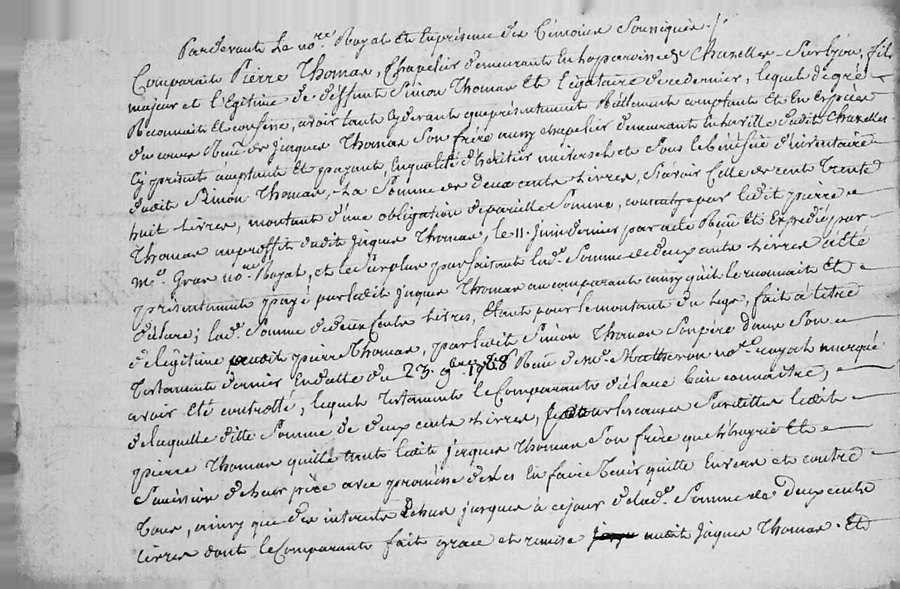 Pardevant Le no.re Royal et En présence des témoins Soussignés./
Comparait Pierre Thomas, Chapelier demeurant En la paroisse de Chazelles-Sur Lyon, fils
majeur et Légitime de deffunt Simon Thomas Et Légataire de ce dernier, lequel de gré
Reconnait Et confesse, avoir tant cy devant que présentement Réellement comptant Et En Espèces
du cours Reçu de Jaques Thomas Son frère aussy chapelier demeurant En la ville dudit Chazelles
cy présent acceptant Et payant, En qualité d'héritier universel et Sous le bénéfice d'inventaire
dudit Simon Thomas, La Somme de deux cents Livres, Sçavoir Celle de cent trente
huit Livres, montant d'une obligation de pareille Somme, contractée par ledit pierre
Thomas au proffit dudit Jaques Thomas, le 11. Juin dernier par acte Reçu Et Expédié par
m.e Gras no.re Royal, et le Surplus parfaisant lad. Somme de deux cents Livres a été
présentement payé par ledit Jaques Thomas au comparant ainsy qu'il le reconnait Et
déclare; lad. Somme de deux Cents Livres, Etant pour le montant du legs, fait à titre
de légitime audit pierre Thomas, par ledit Simon Thomas Son père dans Son
Testament dernier En datte du 23. 9bre 1768 Reçu de m.e Matheron no.re royal marqué
avoir Eté controllé, lequel Testament le Comparant déclare bien connaitre;
de laquelle ditte Somme de deux cents Livres, pour les causes Susdittes ledit
pierre Thomas quitte tant ledit jaques Thomas Son frère que l'hoyrie Et
Succession de leur père avec promesse de les En faire tenir quitte Envers et contre
tous, ainsy que des interets Echus jusques à ce jour de lad. Somme de deux cents
livres dont le Comparant fait grace et remise audit Jaques Thomas. Et